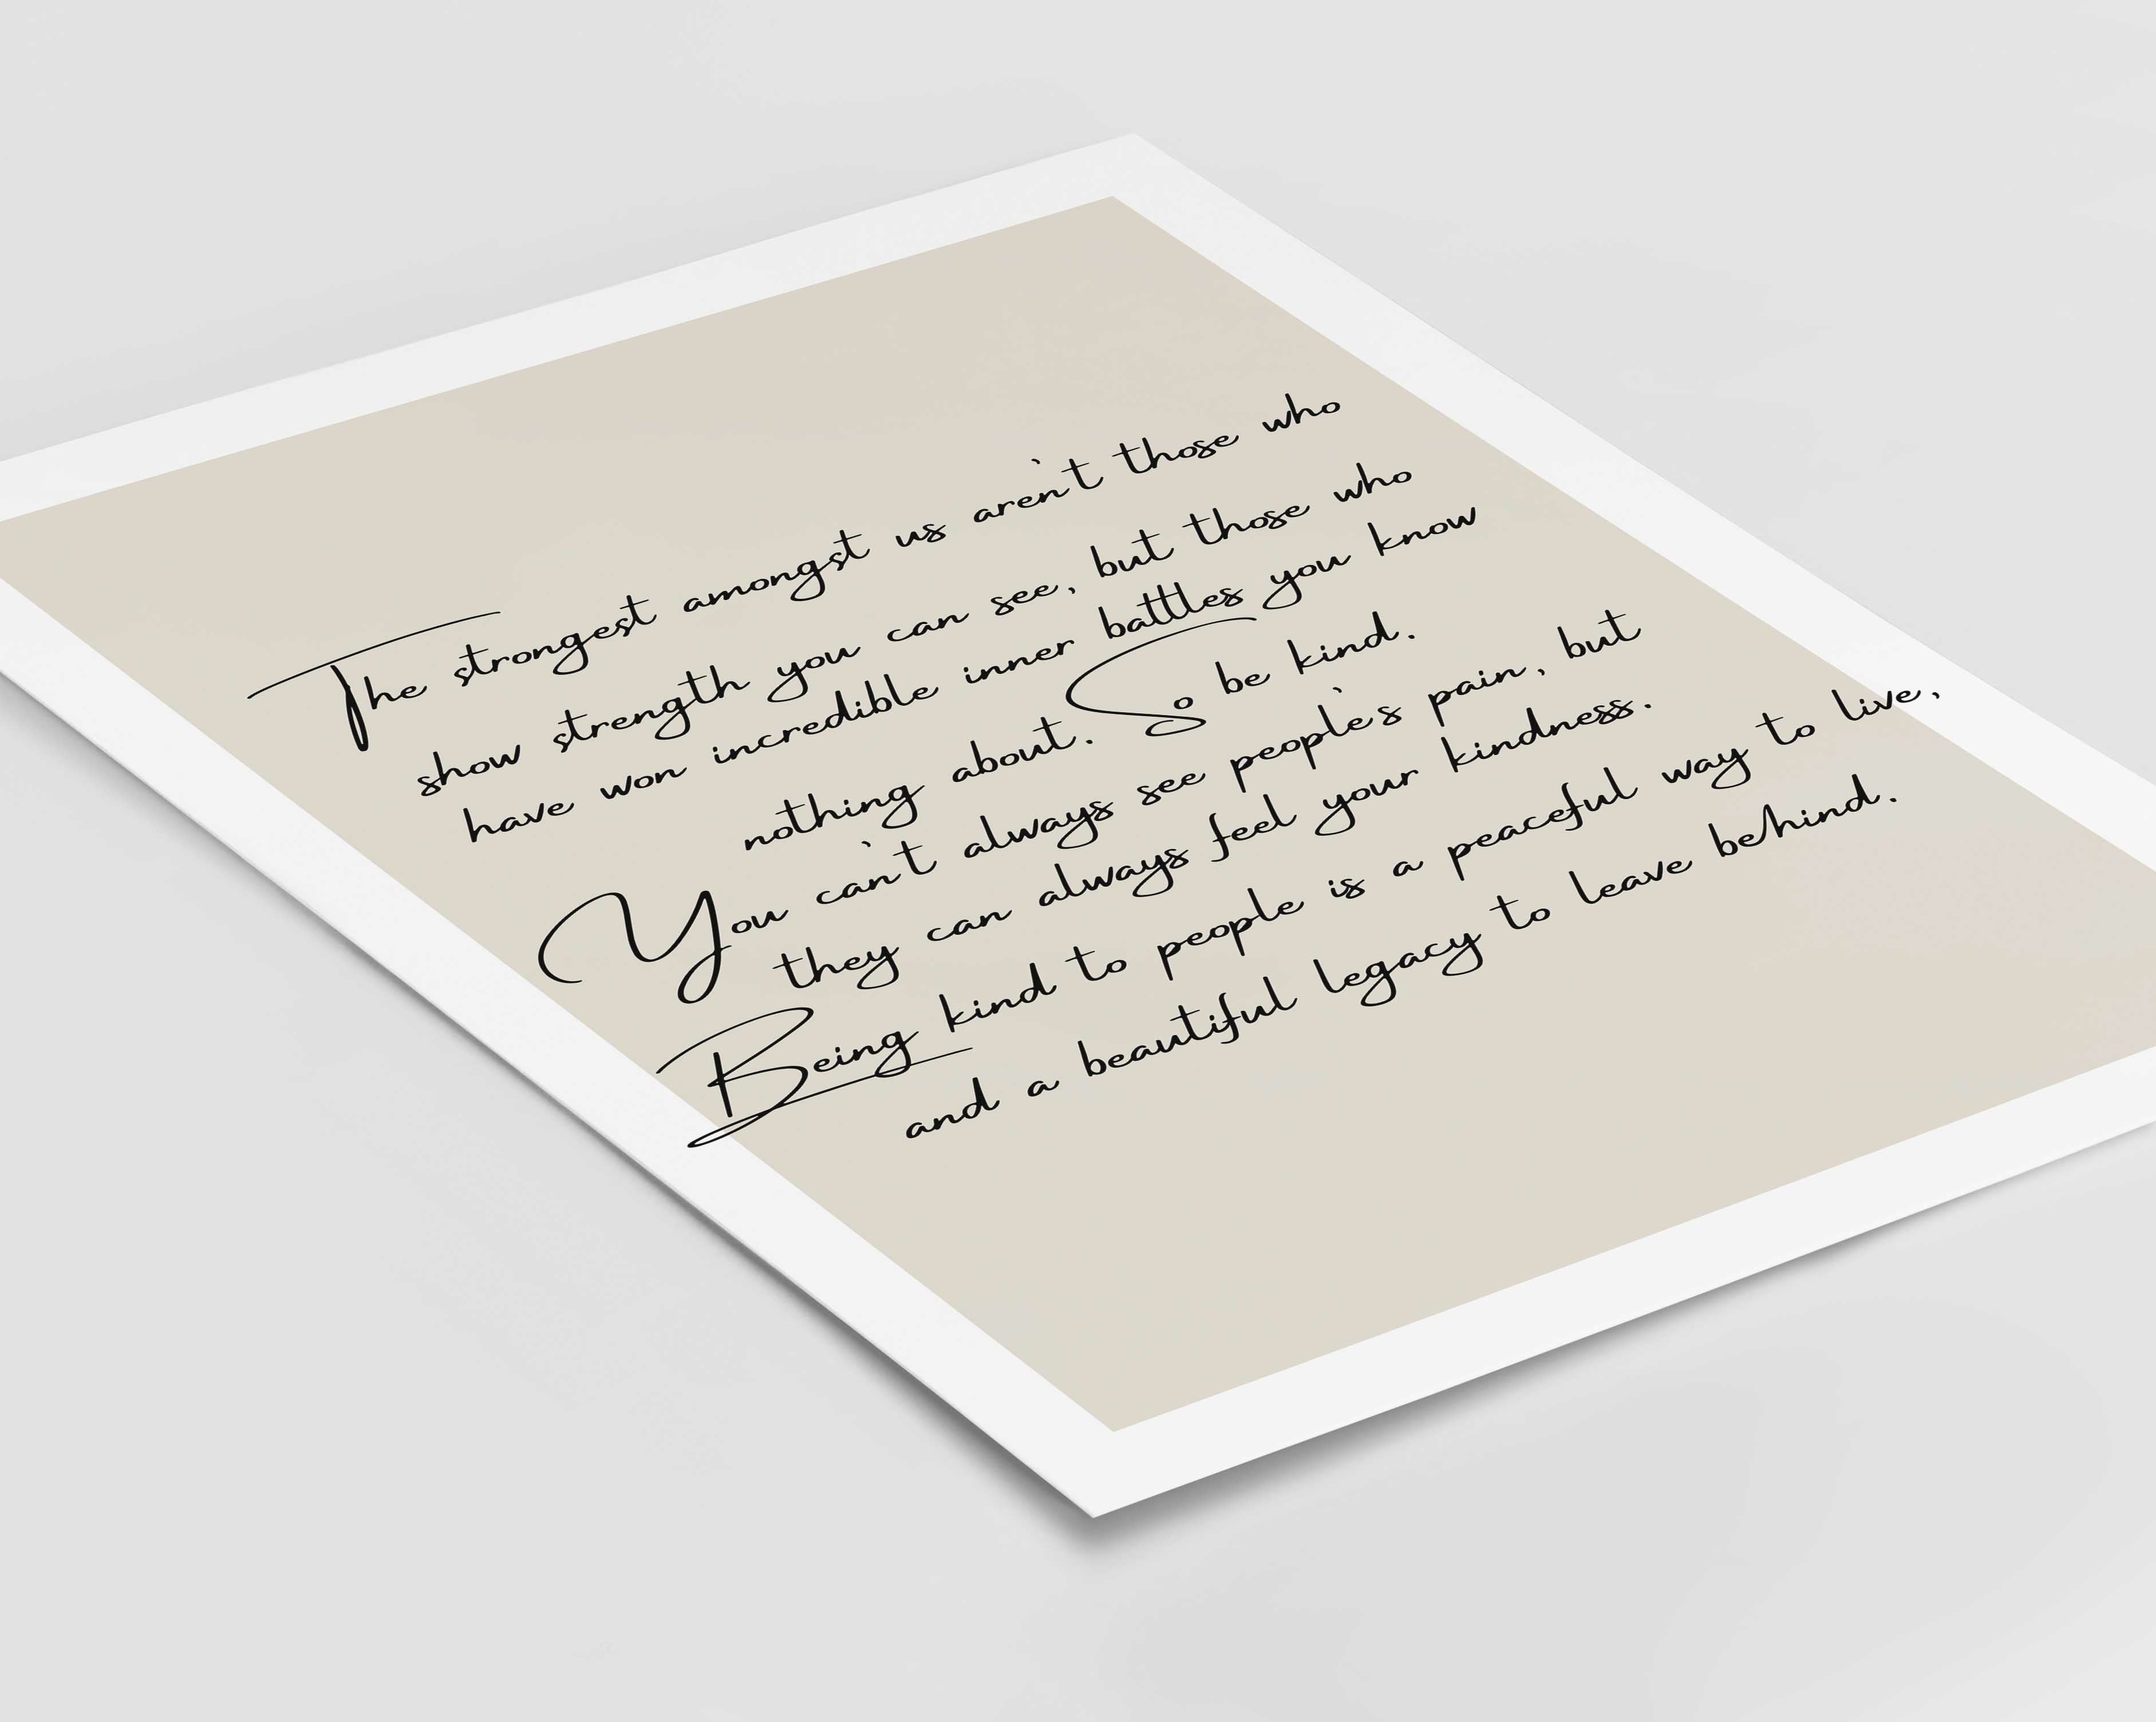 The strongest amongst us aren't those who
show strength you can see, but those who
have won incredible inner battles you know
nothing about. So be kind.
You can't always see people's pain, but
they can always feel your kindness.
Being kind to people is a peaceful way to live,
and a beautiful legacy to leave behind.